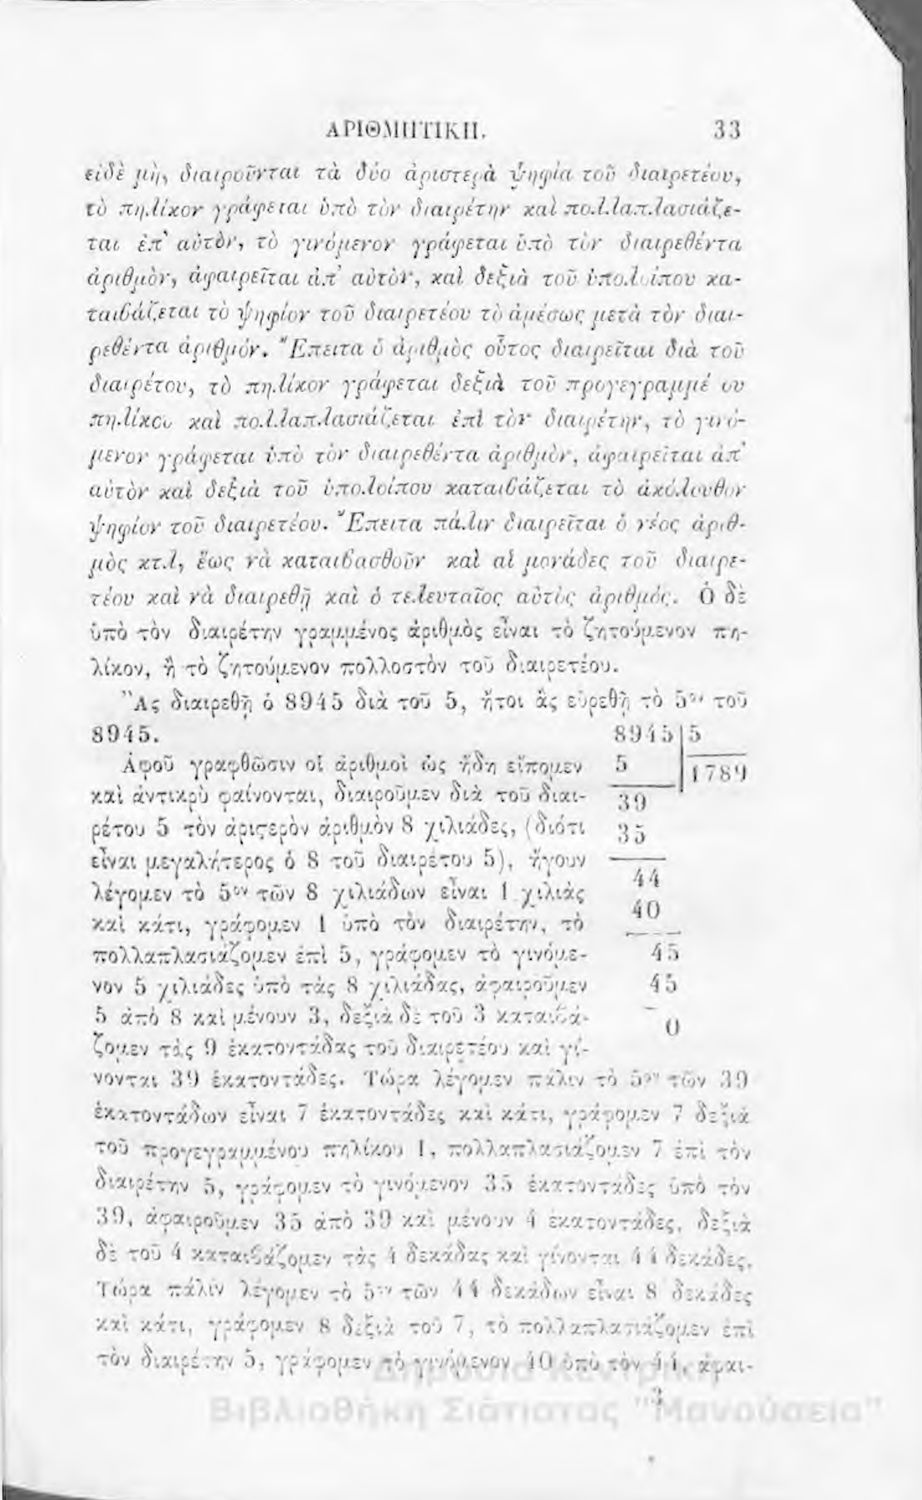 ΑΡΙΘΜΗΤΙΚΗ. 33
εἰδὲ μὴ, διαιροῦνται τὰ δύο ἀριστερὰ ψηφία τοῦ διαιρετέου,
τὸ πηλίκον γράφεται ὑπὸ τὸν διαιρέτην καὶ πολλαπλασιάζε-
ται ἐπ' αὐτὸν, τὸ γινόμενον γράφεται ὑπὸ τὸν διαιρεθέντα
ἀριθμὸν, ἀφαιρεῖται ἀπ' αὐτὸν, καὶ δεξιὰ τοῦ ὑπολοίπου κα-
ταιβάζεται τὸ ψηφίον τοῦ διαιρετέου τὸ ἀμέσως μετὰ τὸν διαι-
ρεθέντα ἀριθμόν. Ἔπειτα ὁ ἀριθμὸς οὗτος διαιρεῖται διὰ τοῦ
διαιρέτου, τὸ πηλίκον γράφεται δεξιὰ τοῦ προγεγραμμέ ου
πηλίκου καὶ πολλαπλασιάζεται ἐπὶ τὸν διαιρέτην, τὸ γινό-
μενον γράφεται ὑπὸ τὸν διαιρεθέντα ἀριθμὸν, ἀφαιρεῖται ἀπ'
αὐτὸν καὶ δεξιὰ τοῦ ὑπολοίπου καταιβάζεται τὸ ἀκόλουθον
ψηφίον τοῦ διαιρετέου. Ἔπειτα πάλιν διαιρεῖται ὁ νέος ἀριθ-
μὸς κτλ, ἕως νὰ καταιβασθοῦν καὶ αἱ μονάδες τοῦ διαιρε-
τέου καὶ νὰ διαιρεθῇ καὶ ὁ τελευταῖος αὐτὸς ἀριθμός. Ὁ δὲ
ὑπὸ τὸν διαιρέτην γραμμένος ἀριθμὸς εἶναι τὸ ζητούμενον πη-
λίκον, ἢ τὸ ζητούμενον πολλοστὸν τοῦ διαιρετέου.
Ἂς διαιρεθῇ ὁ 8945 διὰ τοῦ 5, ἤτοι ἂς εὑρεθῇ τὸ 5ον τοῦ
8945.
Ἀφοῦ γραφθῶσιν οἱ ἀριθμοὶ ὡς ἤδη εἴπομεν
καὶ ἀντικρὺ φαίνονται, διαιροῦμεν διὰ τοῦ διαι-
ρέτου 5 τὸν ἀριςερὸν ἀριθμὸν 8 χιλιάδες, (διότι
εἶναι μεγαλήτερος ὁ 8 τοῦ διαιρέτου 5), ἤγουν
λέγομεν τὸ 5ον τῶν 8 χιλιάδων εἶναι 1 χιλιὰς
καὶ κάτι, γράφομεν 1 ὑπὸ τὸν διαιρέτην, τὸ
πολλαπλασιάζομεν ἐπὶ 5, γράφομεν τὸ γινόμε-
νον 5 χιλιάδες ὑπὸ τὰς 8 χιλιάδας, ἀφαιροῦμεν
5 ἀπὸ 8 καὶ μένουν 3, δεξιὰ δὲ τοῦ 3 καταιβά-
ζομεν τὰς 9 ἑκατοντάδας τοῦ διαιρετέου καὶ γί-
8945 5
5 1789
39
35
44
40
45
45
0
νονται 39 ἑκατοντάδες. Τώρα λέγομεν πάλιν τὸ 5ον τῶν 39
ἑκατοντάδων εἶναι 7 ἑκατοντάδες καὶ κάτι, γράφομεν 7 δεξιὰ
τοῦ προγεγραμμένου πηλίκου 1, πολλαπλασιάζομεν 7 ἐπὶ τὸν
διαιρέτην 5, γράφομεν τὸ γινόμενον 35 ἑκατοντάδες ὑπὸ τὸν
39, ἀφαιροῦμεν 35 ἀπὸ 39 καὶ μένουν 4 ἑκατοντάδες, δεξιὰ
δὲ τοῦ 4 καταιβάζομεν τὰς 4 δεκάδας καὶ γίνονται 44 δεκάδες.
Τώρα πάλιν λέγομεν τὸ 5ον τῶν 44 δεκάδων εἶναι 8 δεκάδες
καὶ κάτι, γράφομεν 8 δεξιὰ τοῦ 7, τὸ πολλαπλασιάζομεν ἐπὶ
τὸν διαιρέτην 5, γράφομεν τὸ γινόμενον 40 ὑπὸ τὸν 44, ἀφαι-
3
Δημόσια Κεντρική
Βιβλιοθήκη Σιάτιστας "Μανούσεια"